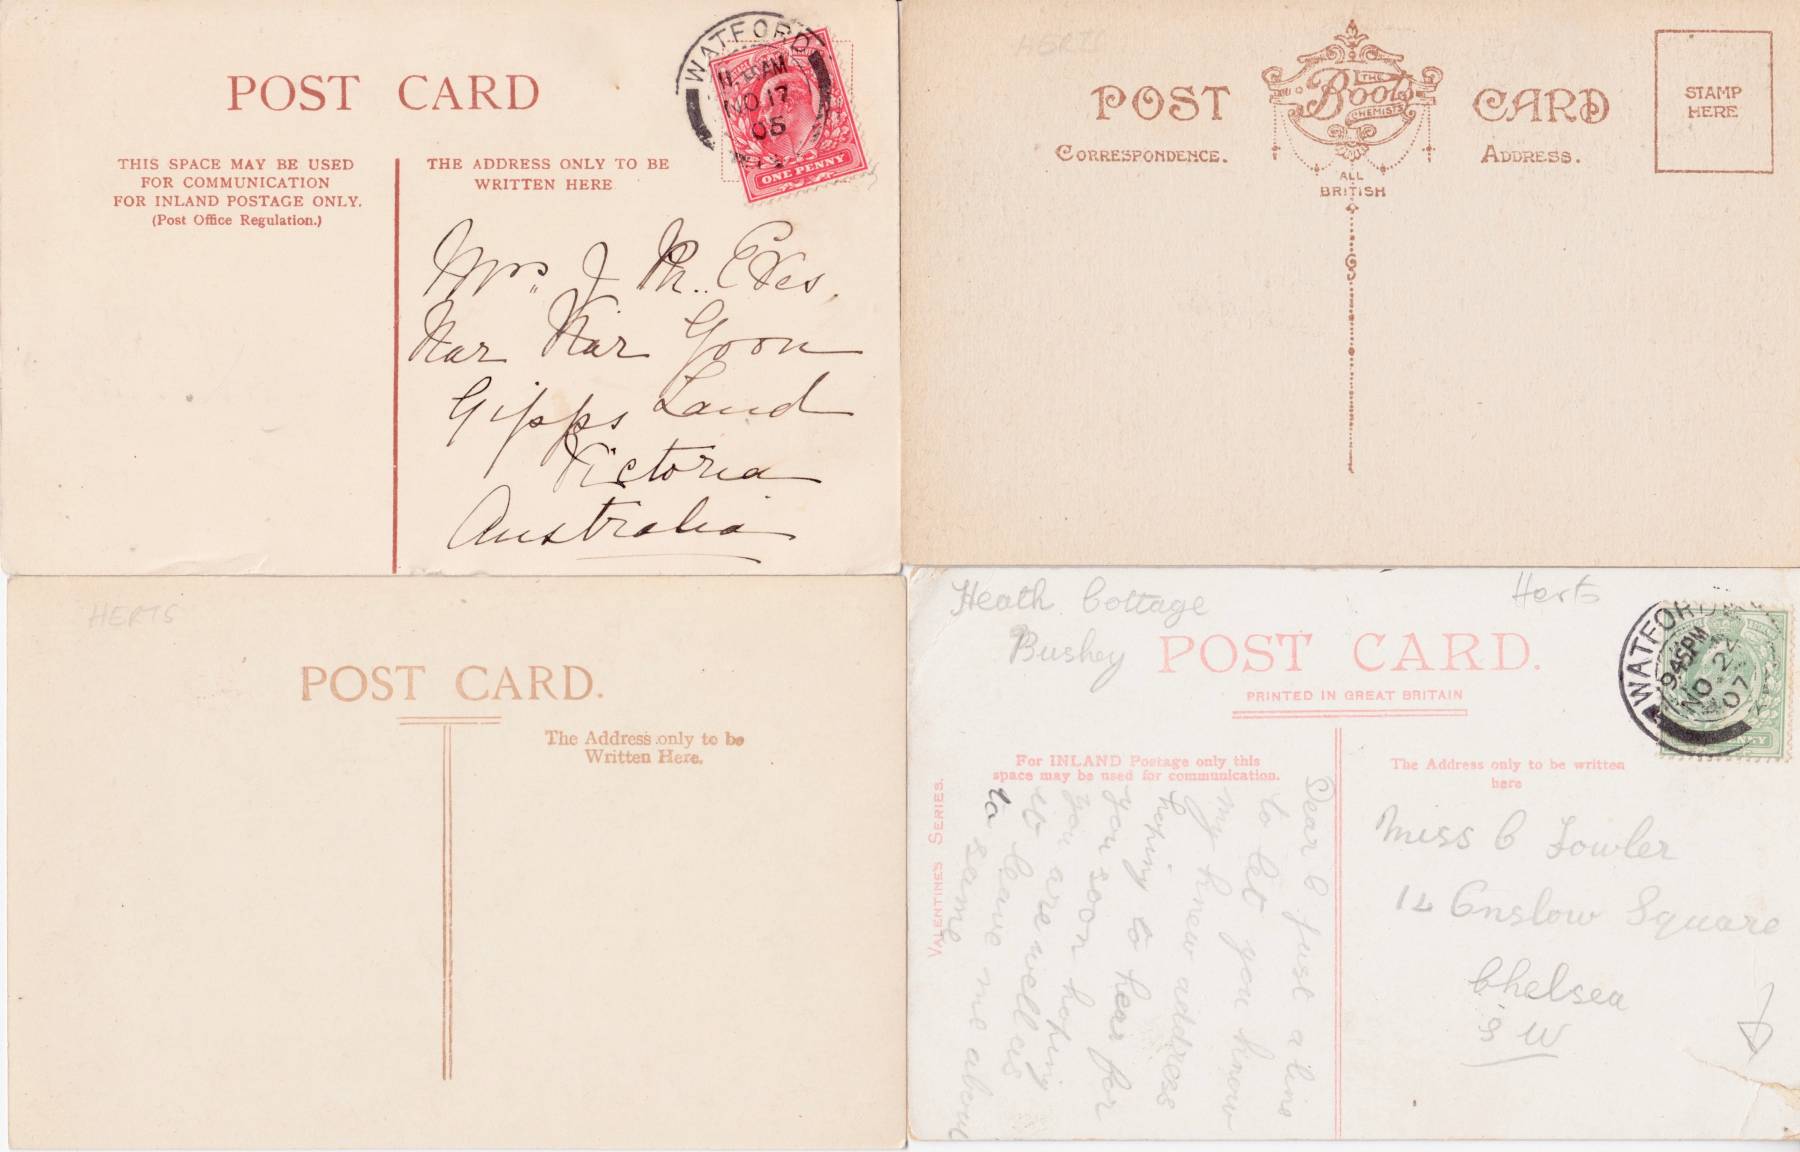 POST CARD
WATFORD
NO 17
05
ONE PENNY
THIS SPACE MAY BE USED
FOR COMMUNICATION
FOR INLAND POSTAGE ONLY.
(Post Office Regulation.)
THE ADDRESS ONLY TO BE
WRITTEN HERE
Mrs J
Nar Nar Goon
Gipps Land
Victoria
Australia
HERTS
POST CARD
THE
Boots
CHEMISTS
ALL
BRITISH
CORRESPONDENCE.
ADDRESS.
STAMP
HERE
HERTS
POST CARD.
The Address only to be
Written Here.
Heath Cottage
Bushey
Herts
POST CARD.
PRINTED IN GREAT BRITAIN
WATFORD
9.45PM
NO 22
07
For INLAND Postage only this
space may be used for communication.
The Address only to be written
here
VALENTINES SERIES.
Dear C just a line
to let you know
my knew address
hoping to hear for
you soon hoping
you are well as
it leave me about
to same
Miss C Fowler
14 Onslow Square
Chelsea
S W